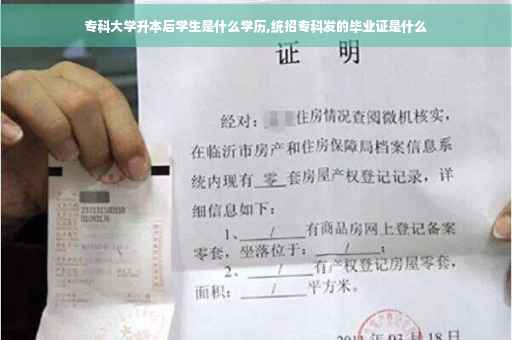 专科大学升本后学生是什么学历,统招专科发的毕业证是什么
证 明
经对: 住房情况查阅微机核实,
在临沂市房产和住房保障局档案信息系
统内现有 零 套房屋产权登记记录, 详
细信息如下:
1、 / 有商品房网上登记备案
零套, 坐落位于: / ;
2、 / 有产权登记房屋零套,
面积: / 平方米。